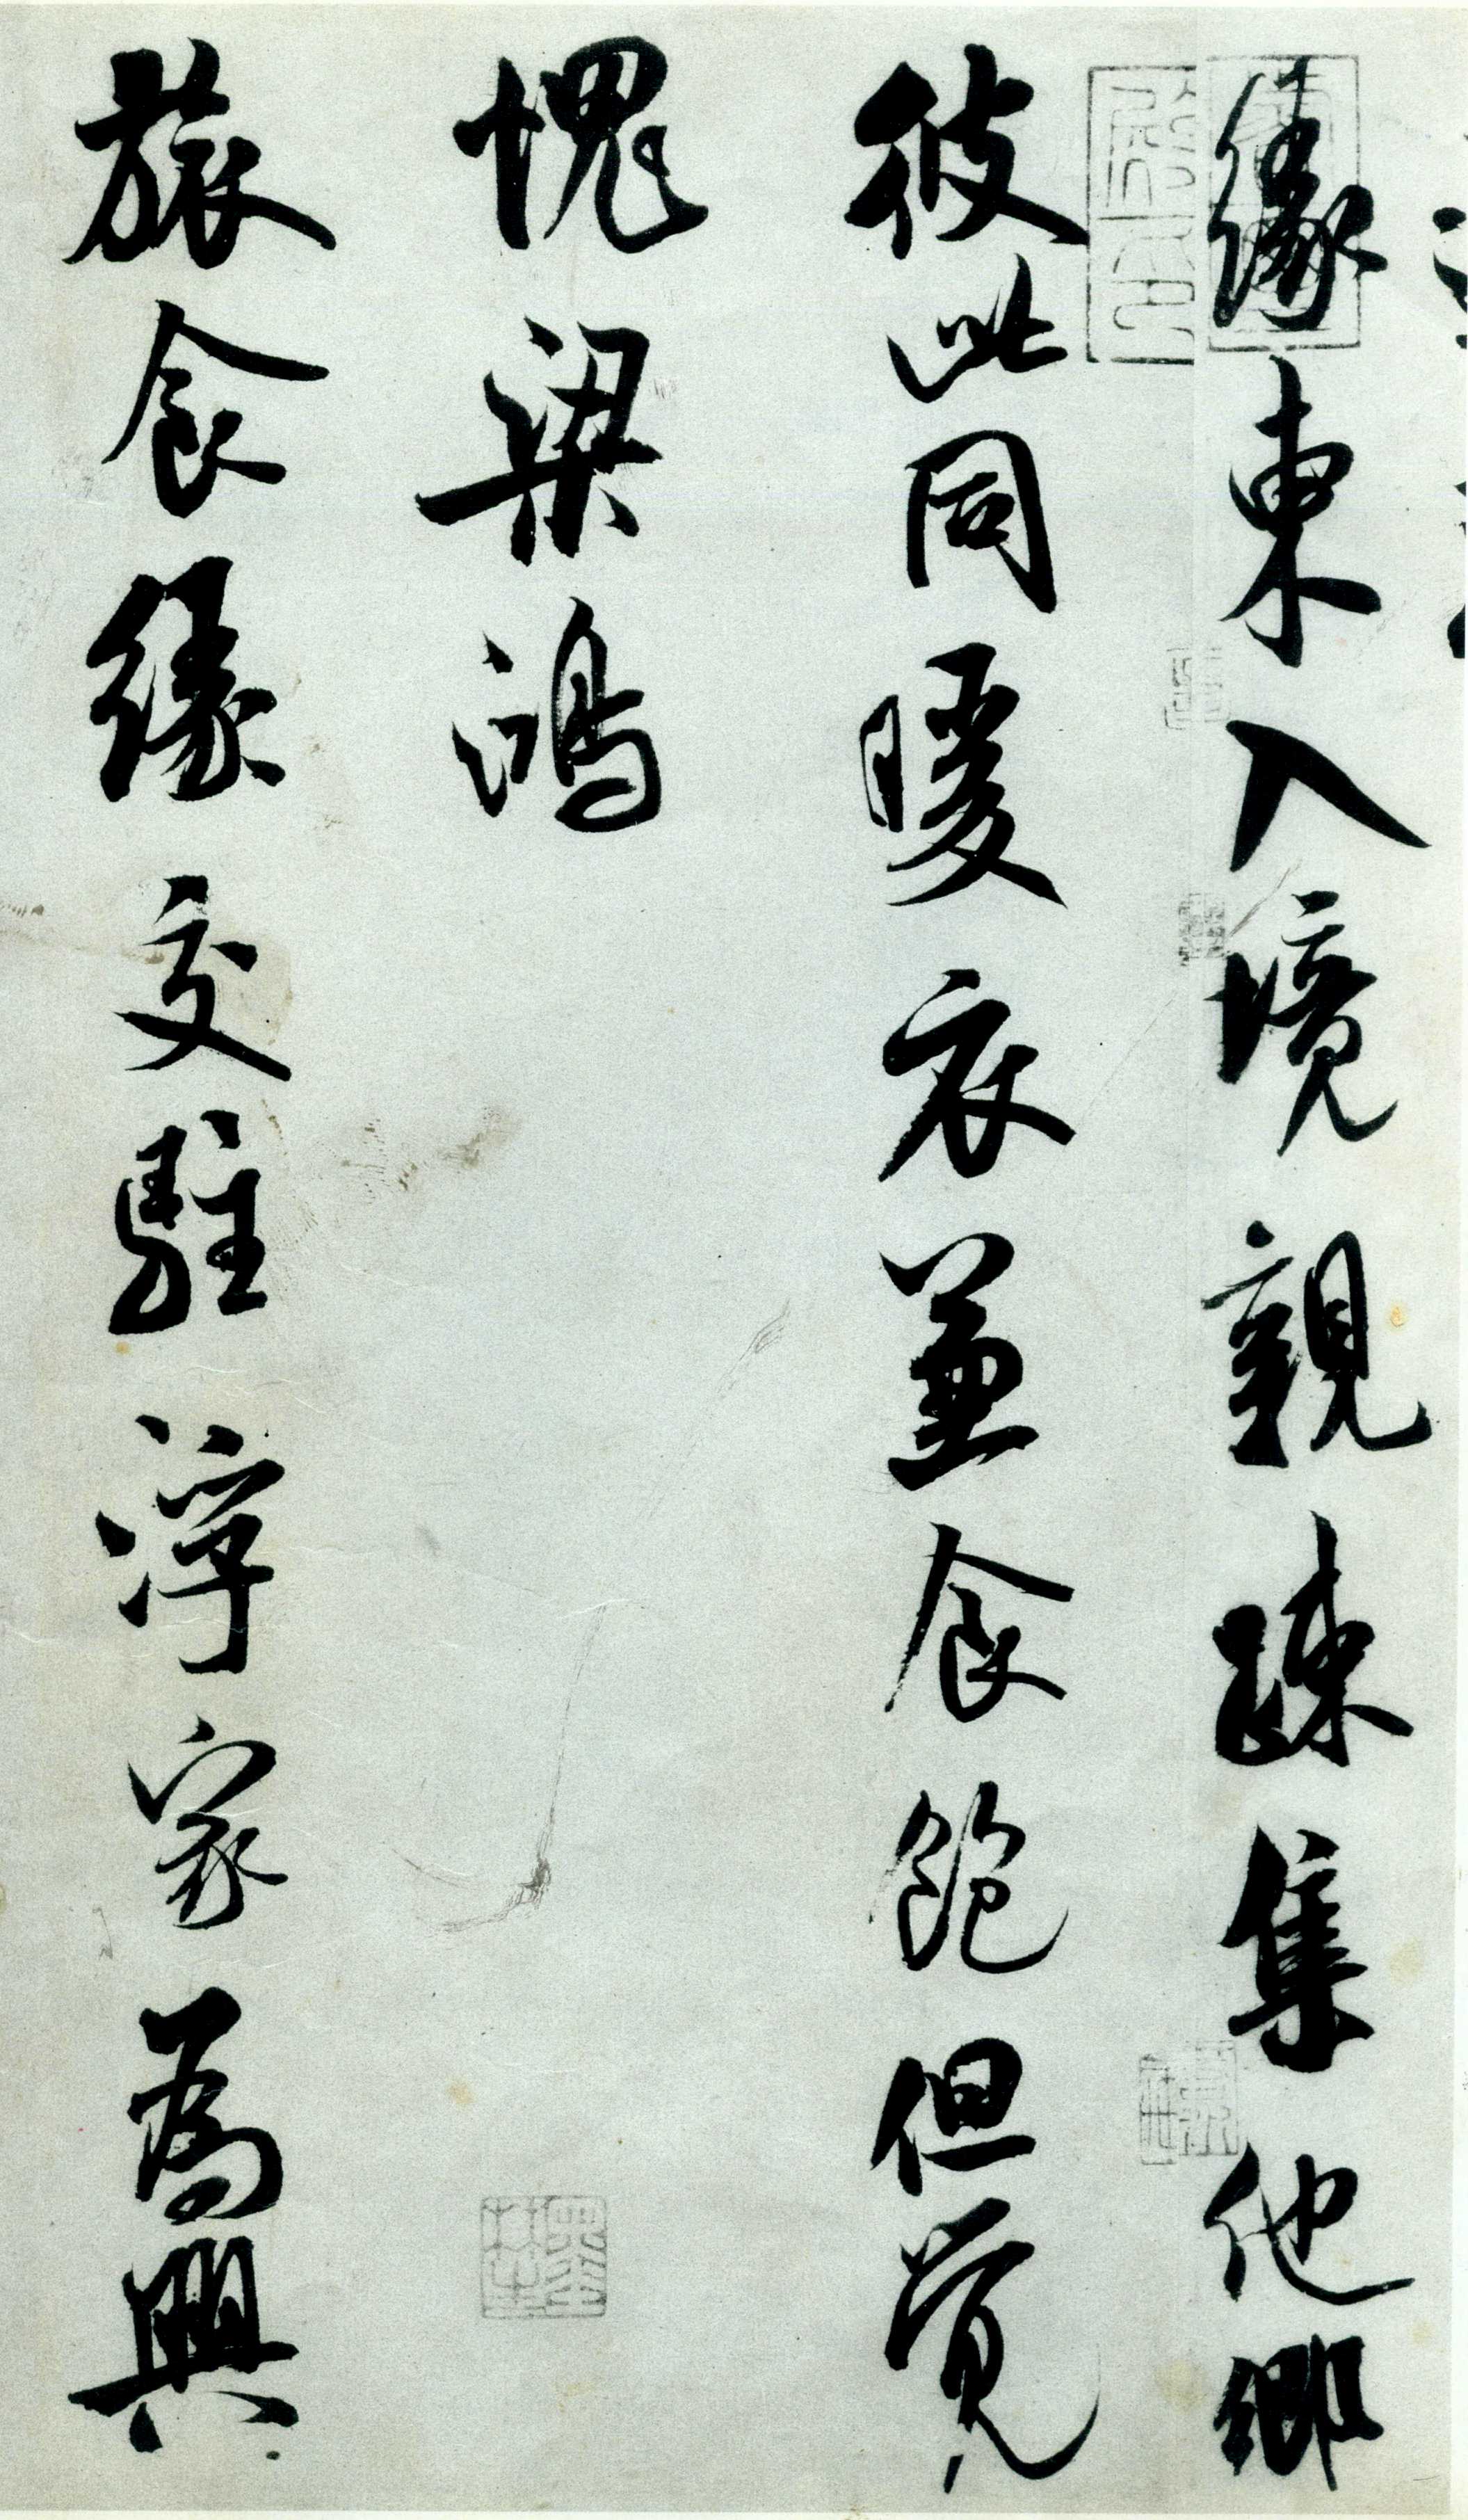 緣東入境親踈集他鄉
彼此同暖衣兼食飽但覺
愧梁鴻
旅食緣交駐浮家為興